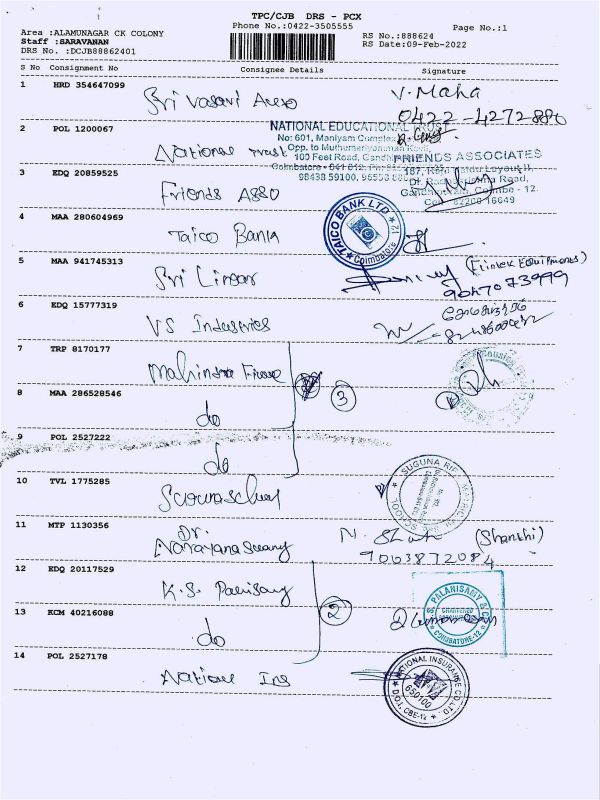 TPC/CJB DRS - PCX
Phone No.:0422-3505555
Page No.:1
Area :ALAMUNAGAR CK COLONY
Staff :SARAVANAN
DRS No. :DCJB88862401
RS No.:888624
RS Date:09-Feb-2022
S No Consignment No Consignee Details Signature
1 HRD 354647099
Sri Vasavi V. Maha
0422-4272880
2 POL 1200067
National Trust
NATIONAL EDUCATIONAL TRUST
No: 601, Maniyam Complex
Opp. to Muthumariyamman Kovil,
100 Feet Road,
98438 59100,
3 EDQ 20859525
Friends Asso
FRIENDS ASSOCIATES
Road,
12.
4 MAA 280604969
Taico Bank
TAICO BANK LTD
Coimbatore 12
5 MAA 941745313
Sri Linear
9047073999
6 EDQ 15777319
VS Industries
7 TRP 8170177
Mahindra
8 MAA 286528546
do
3
9 POL 2527222
do
10 TVL 1775285
SUGUNA SCHOOL
11 MTP 1130356
Dr. Narayanaswamy N. (Shanthi)
9003872084
12 EDQ 20117529
K.S. Palanisamy
13 KCM 40216088
do
2
S. PALANISAMY & CO
CHARTERED ACCOUNTANTS
COIMBATORE-12
14 POL 2527178
National Ins
NATIONAL INSURANCE CO.LTD.
650100
D.O.I, CBE-12